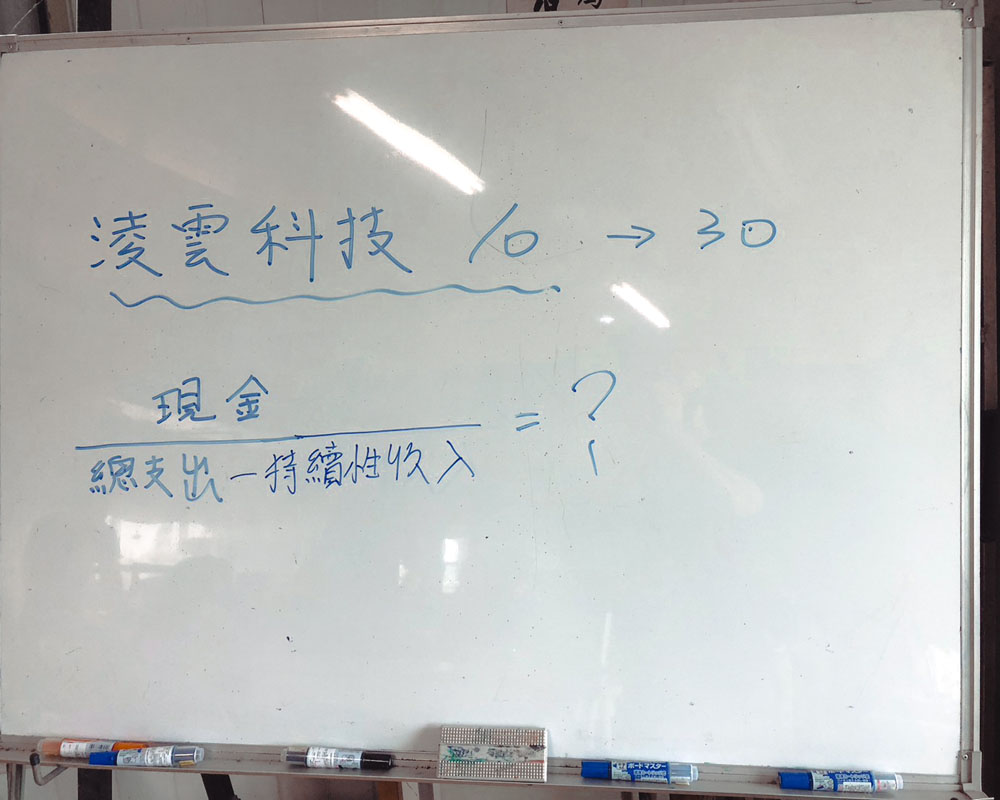 凌雲科技 10 → 30
現金
總支出 - 持續性收入 = ?
ボードマスター